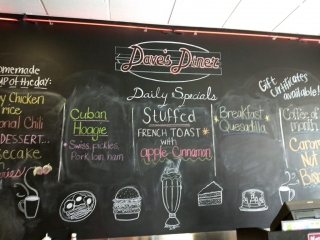 Dave's Diner
Daily Specials
omemade
up of the day:
y Chicken
rice
rial Chili
DESSERT...
secake
ries
Cuban
Hoagie
Swiss, pickles,
Pork loin, ham
Stuffed
FRENCH TOAST
with
apple Cinnamon
Breakfast
Quesadilla
Gift
Certificates
available!
Coffee of
month
Caram
Nut